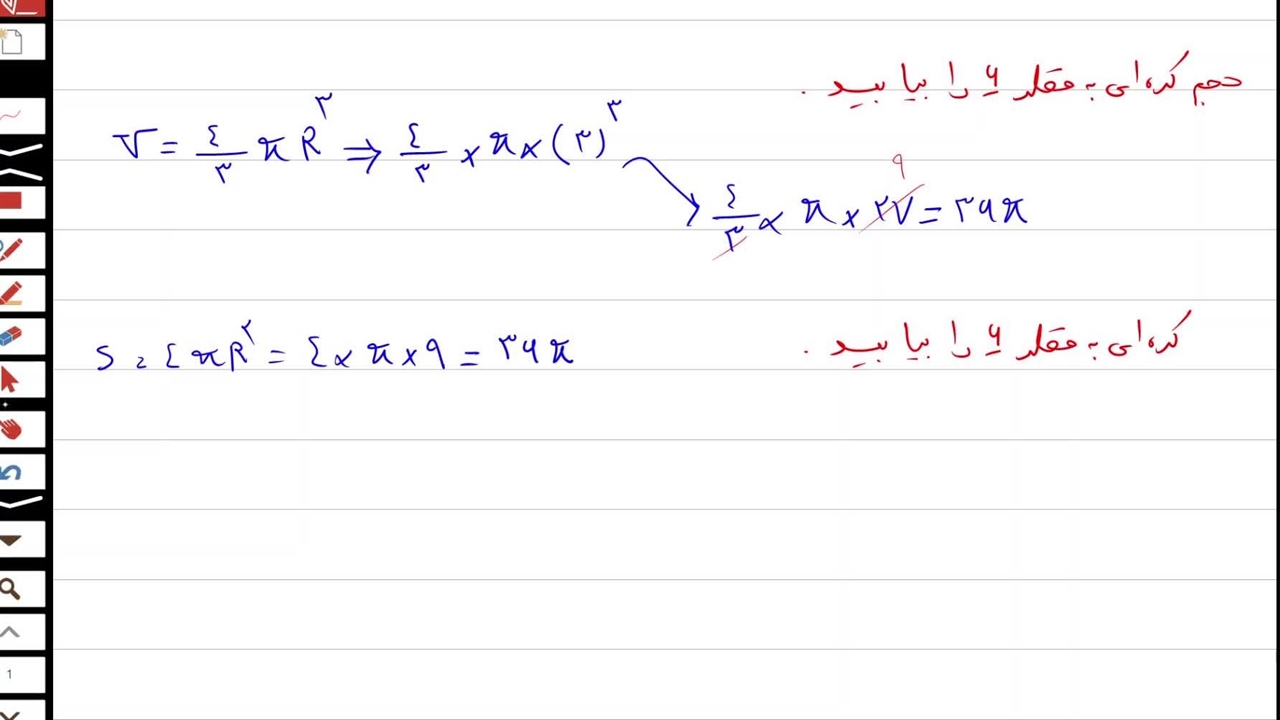 حجم کره‌ای به قطر ۶ را بیابید .
V = ۴/۳ π R^۳ ⇒ ۴/۳ × π × (۳)^۳
۹
۴/۳ × π × ۲۷ = ۳۶π
کره‌ای به قطر ۶ را بیابید .
S = ۴πR^۲ = ۴ × π × ۹ = ۳۶π
1